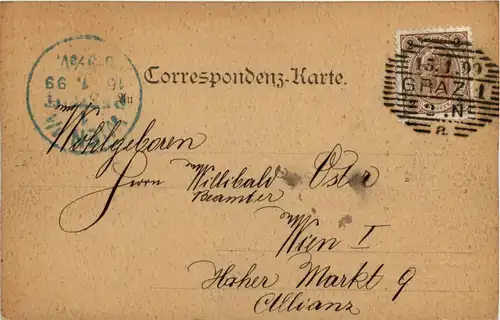 Correspondenz-Karte.
An
Wohlgeboren
Herrn Willibald Oster
Beamter
Wien I
Hoher Markt 9
Allianz
15.1.99
GRAZ 1
2.N
a
15.1.99